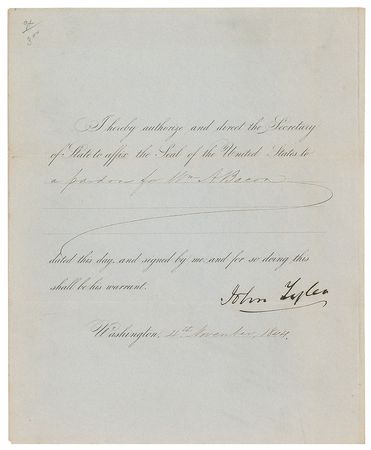 I hereby authorize and direct the Secretary
of State to affix the Seal of the United States to
a pardon for Wm A Bacon
dated this day, and signed by me: and for so doing this
shall be his warrant.
John Tyler
Washington, 4th November, 1844.